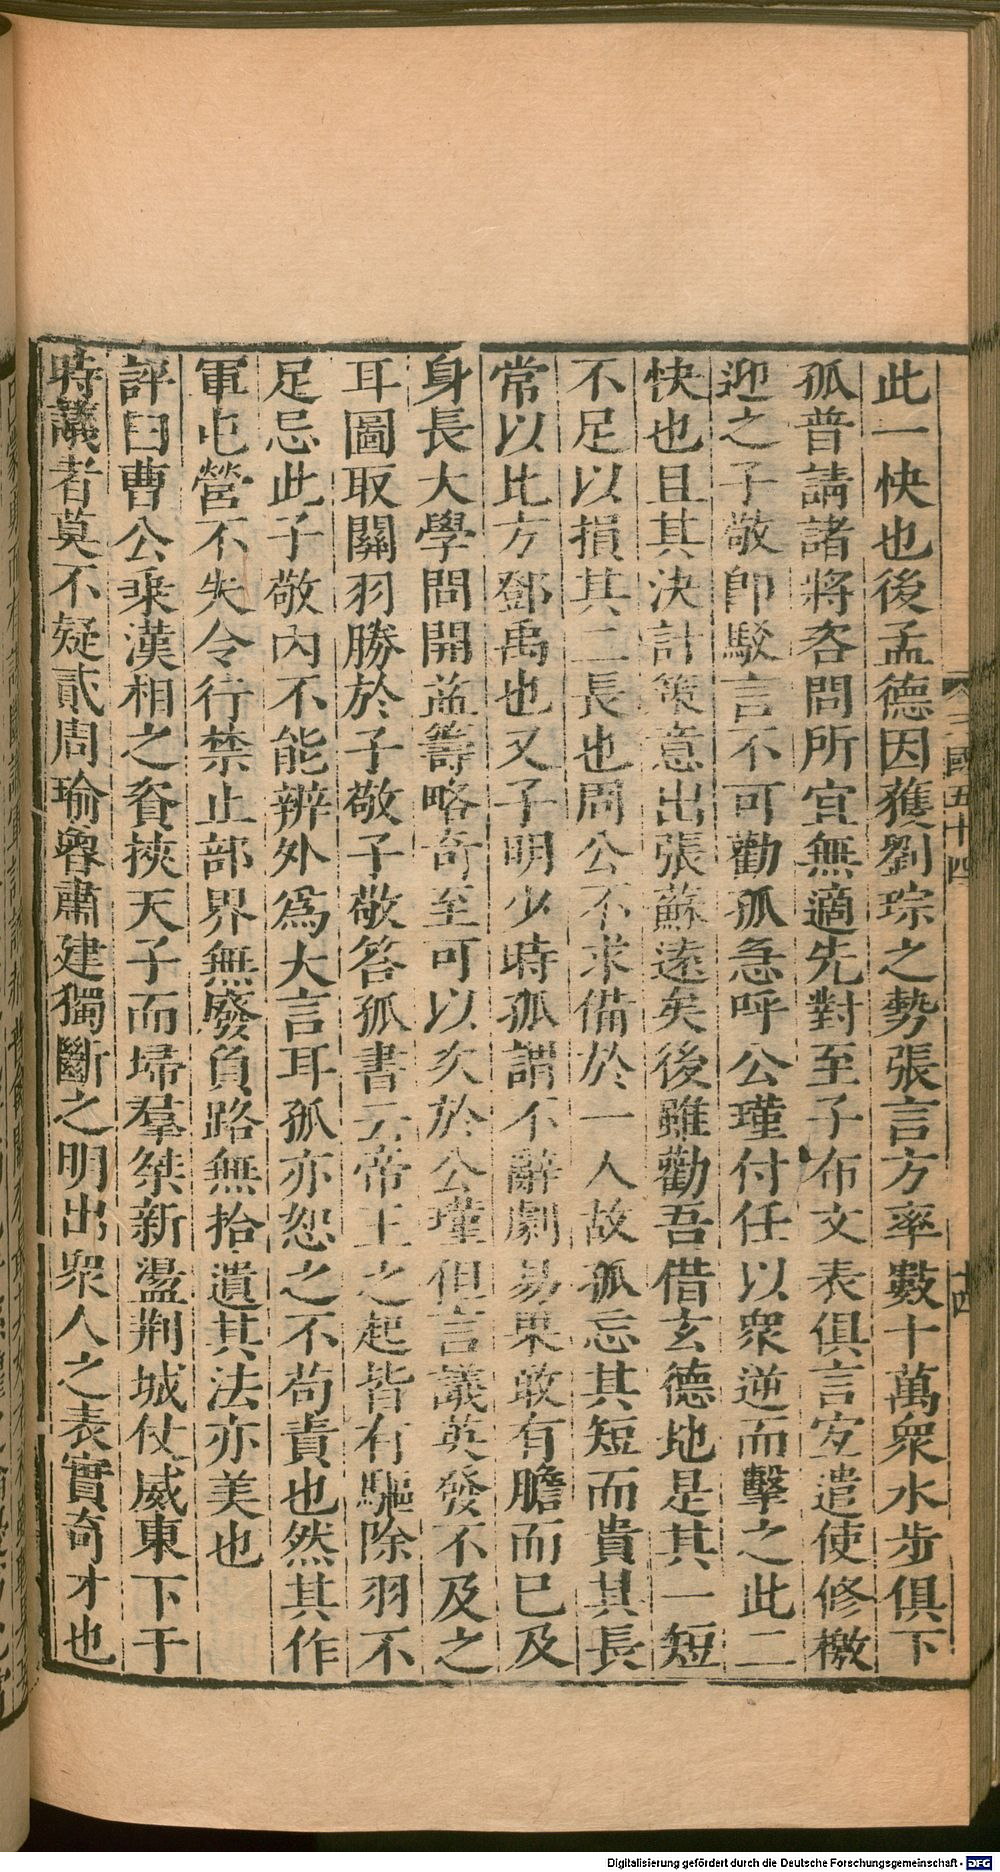 此一快也後孟德因獲劉琮之勢張言方率數十萬衆水步俱下
孤普請諸將咨問所宜無適先對至子布文表俱言宜遣使修檄
迎之子敬即駁言不可勸孤急呼公瑾付任以衆逆而擊之此二
快也且其決計策意出張蘇遠矣後雖勸吾借玄德地是其一短
不足以損其二長也周公不求備於一人故孤忘其短而貴其長
常以比方鄧禹也又子明少時孤謂不辭劇易果敢有膽而已及
身長大學問開益籌略奇至可以次於公瑾但言議英發不及之
耳圖取關羽勝於子敬子敬答孤書云帝王之起皆有驅除羽不
足忌此子敬內不能辨外爲大言耳孤亦恕之不苟責也然其作
軍屯營不失令行禁止部界無廢負路無拾遺其法亦美也
評曰曹公乘漢相之資挾天子而埽羣桀新盪荆城仗威東下于
時議者莫不疑貳周瑜魯肅建獨斷之明出衆人之表實奇才也
三國五十四
十四
Digitalisierung gefördert durch die Deutsche Forschungsgemeinschaft - DFG